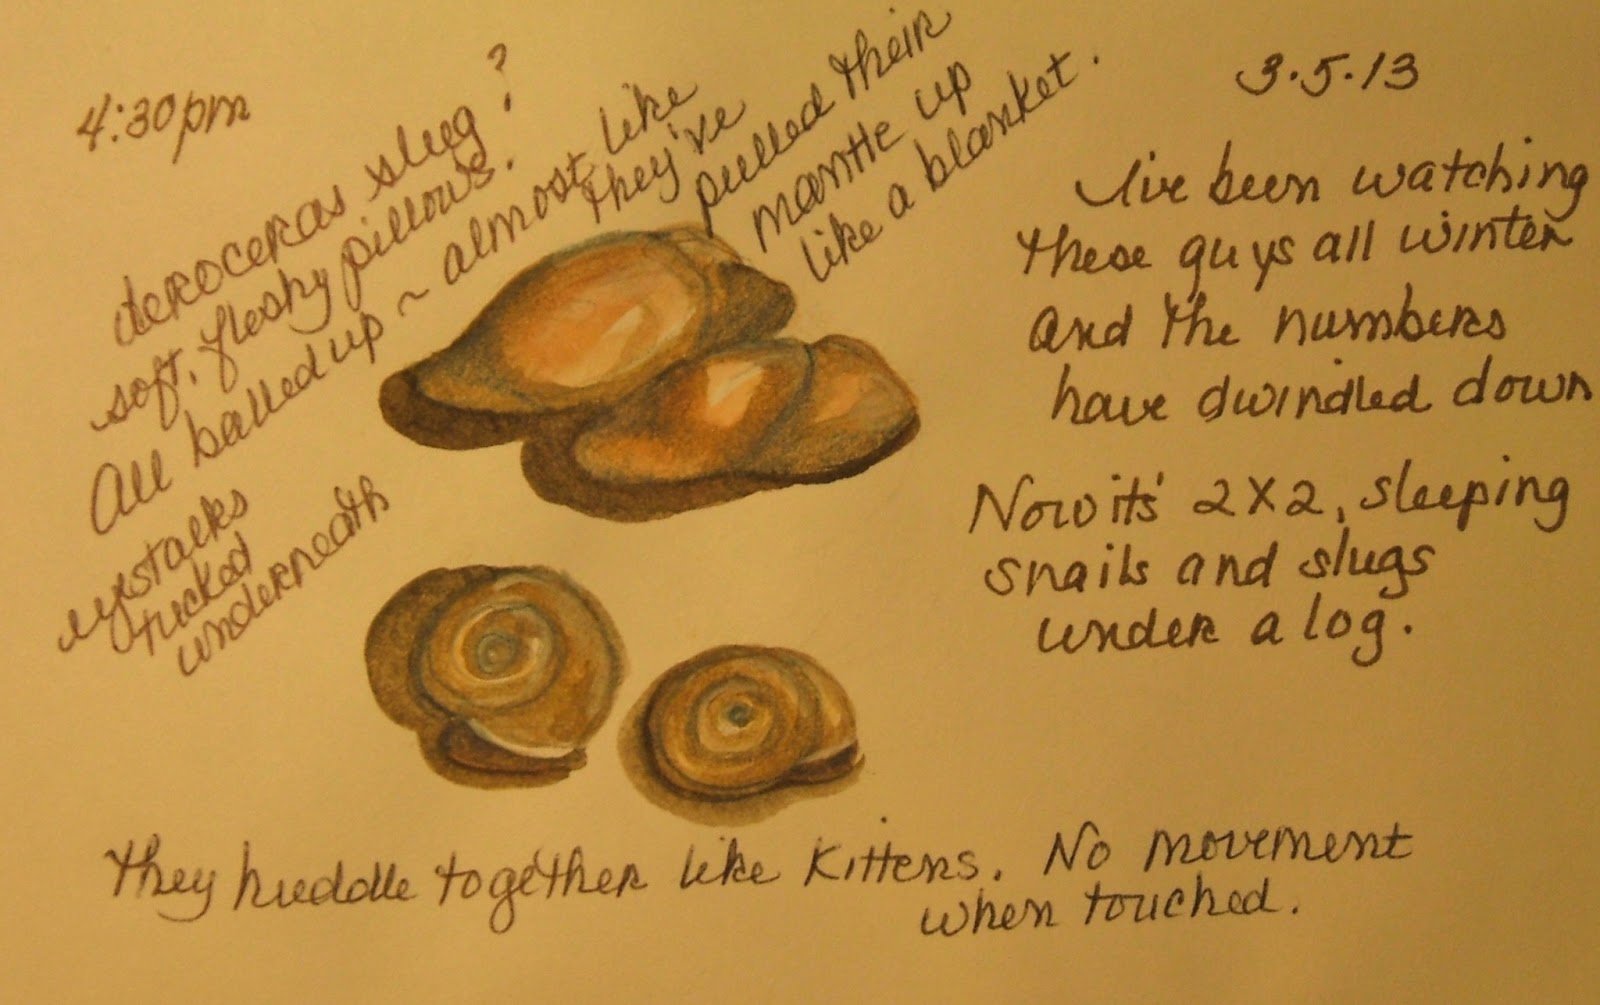 4:30pm
3.5.13
deroceras slug?
soft, fleshy pillows.
All balled up ~ almost like
they've
pulled their
mantle up
like a blanket.
eyestalks
tucked
underneath
I've been watching
these guys all winter
and the numbers
have dwindled down
Now its' 2x2, sleeping
snails and slugs
under a log.
They huddle together like kittens. No movement
when touched.